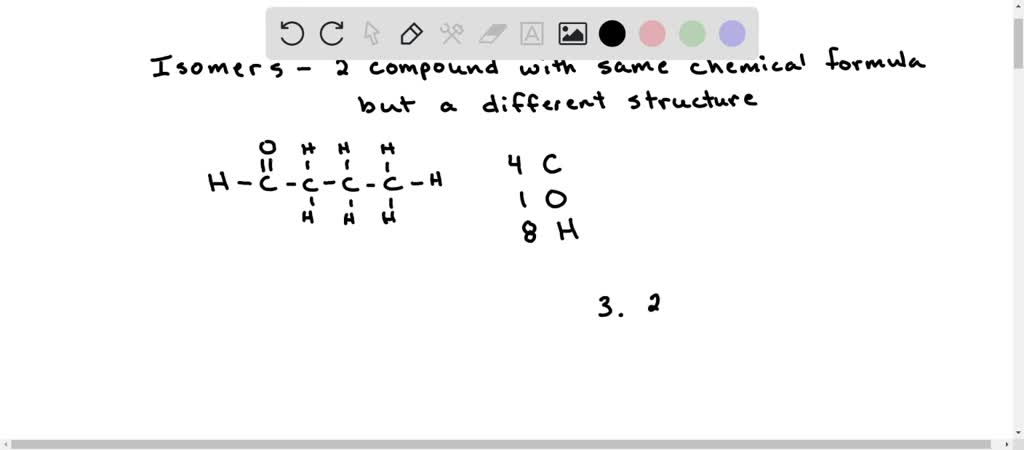 Isomers - 2 compound with same chemical formula
but a different structure
O H H H
H - C - C - C - C - H
H H H
4 C
1 O
8 H
3. 2